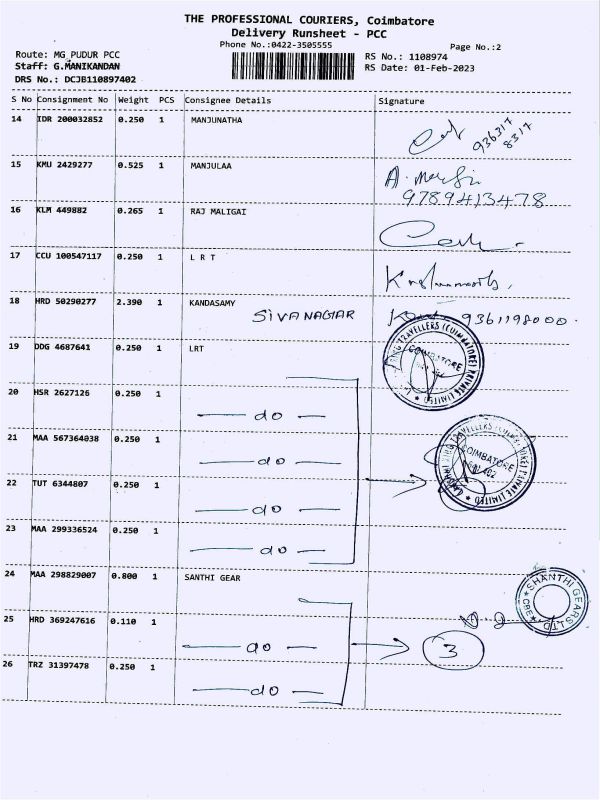 THE PROFESSIONAL COURIERS, Coimbatore
Delivery Runsheet - PCC
Phone No.:0422-3505555
Page No.:2
Route: MG_PUDUR PCC
RS No.: 1108974
Staff: G.MANIKANDAN
RS Date: 01-Feb-2023
DRS No.: DCJB110897402
S No Consignment No Weight PCS Consignee Details Signature
14 IDR 200032852 0.250 1 MANJUNATHA
936317
8317
15 KMU 2429277 0.525 1 MANJULAA
9789413478
16 KLM 449882 0.265 1 RAJ MALIGAI
17 CCU 100547117 0.250 1 L R T
18 HRD 50290277 2.390 1 KANDASAMY
SIVANAGAR 9361198000.
19 DDG 4687641 0.250 1 LRT
TRAVELLERS (COIMBATORE) PRIVATE LIMITED
COIMBATORE
20 HSR 2627126 0.250 1
do
21 MAA 567364038 0.250 1
do
TRAVELLERS PRIVATE LIMITED
COIMBATORE
22 TUT 6344807 0.250 1
do
23 MAA 299336524 0.250 1
do
24 MAA 298829007 0.800 1 SANTHI GEAR
SHANTHI GEARS LTD
CBE
25 HRD 369247616 0.110 1
do 3
26 TRZ 31397478 0.250 1
do